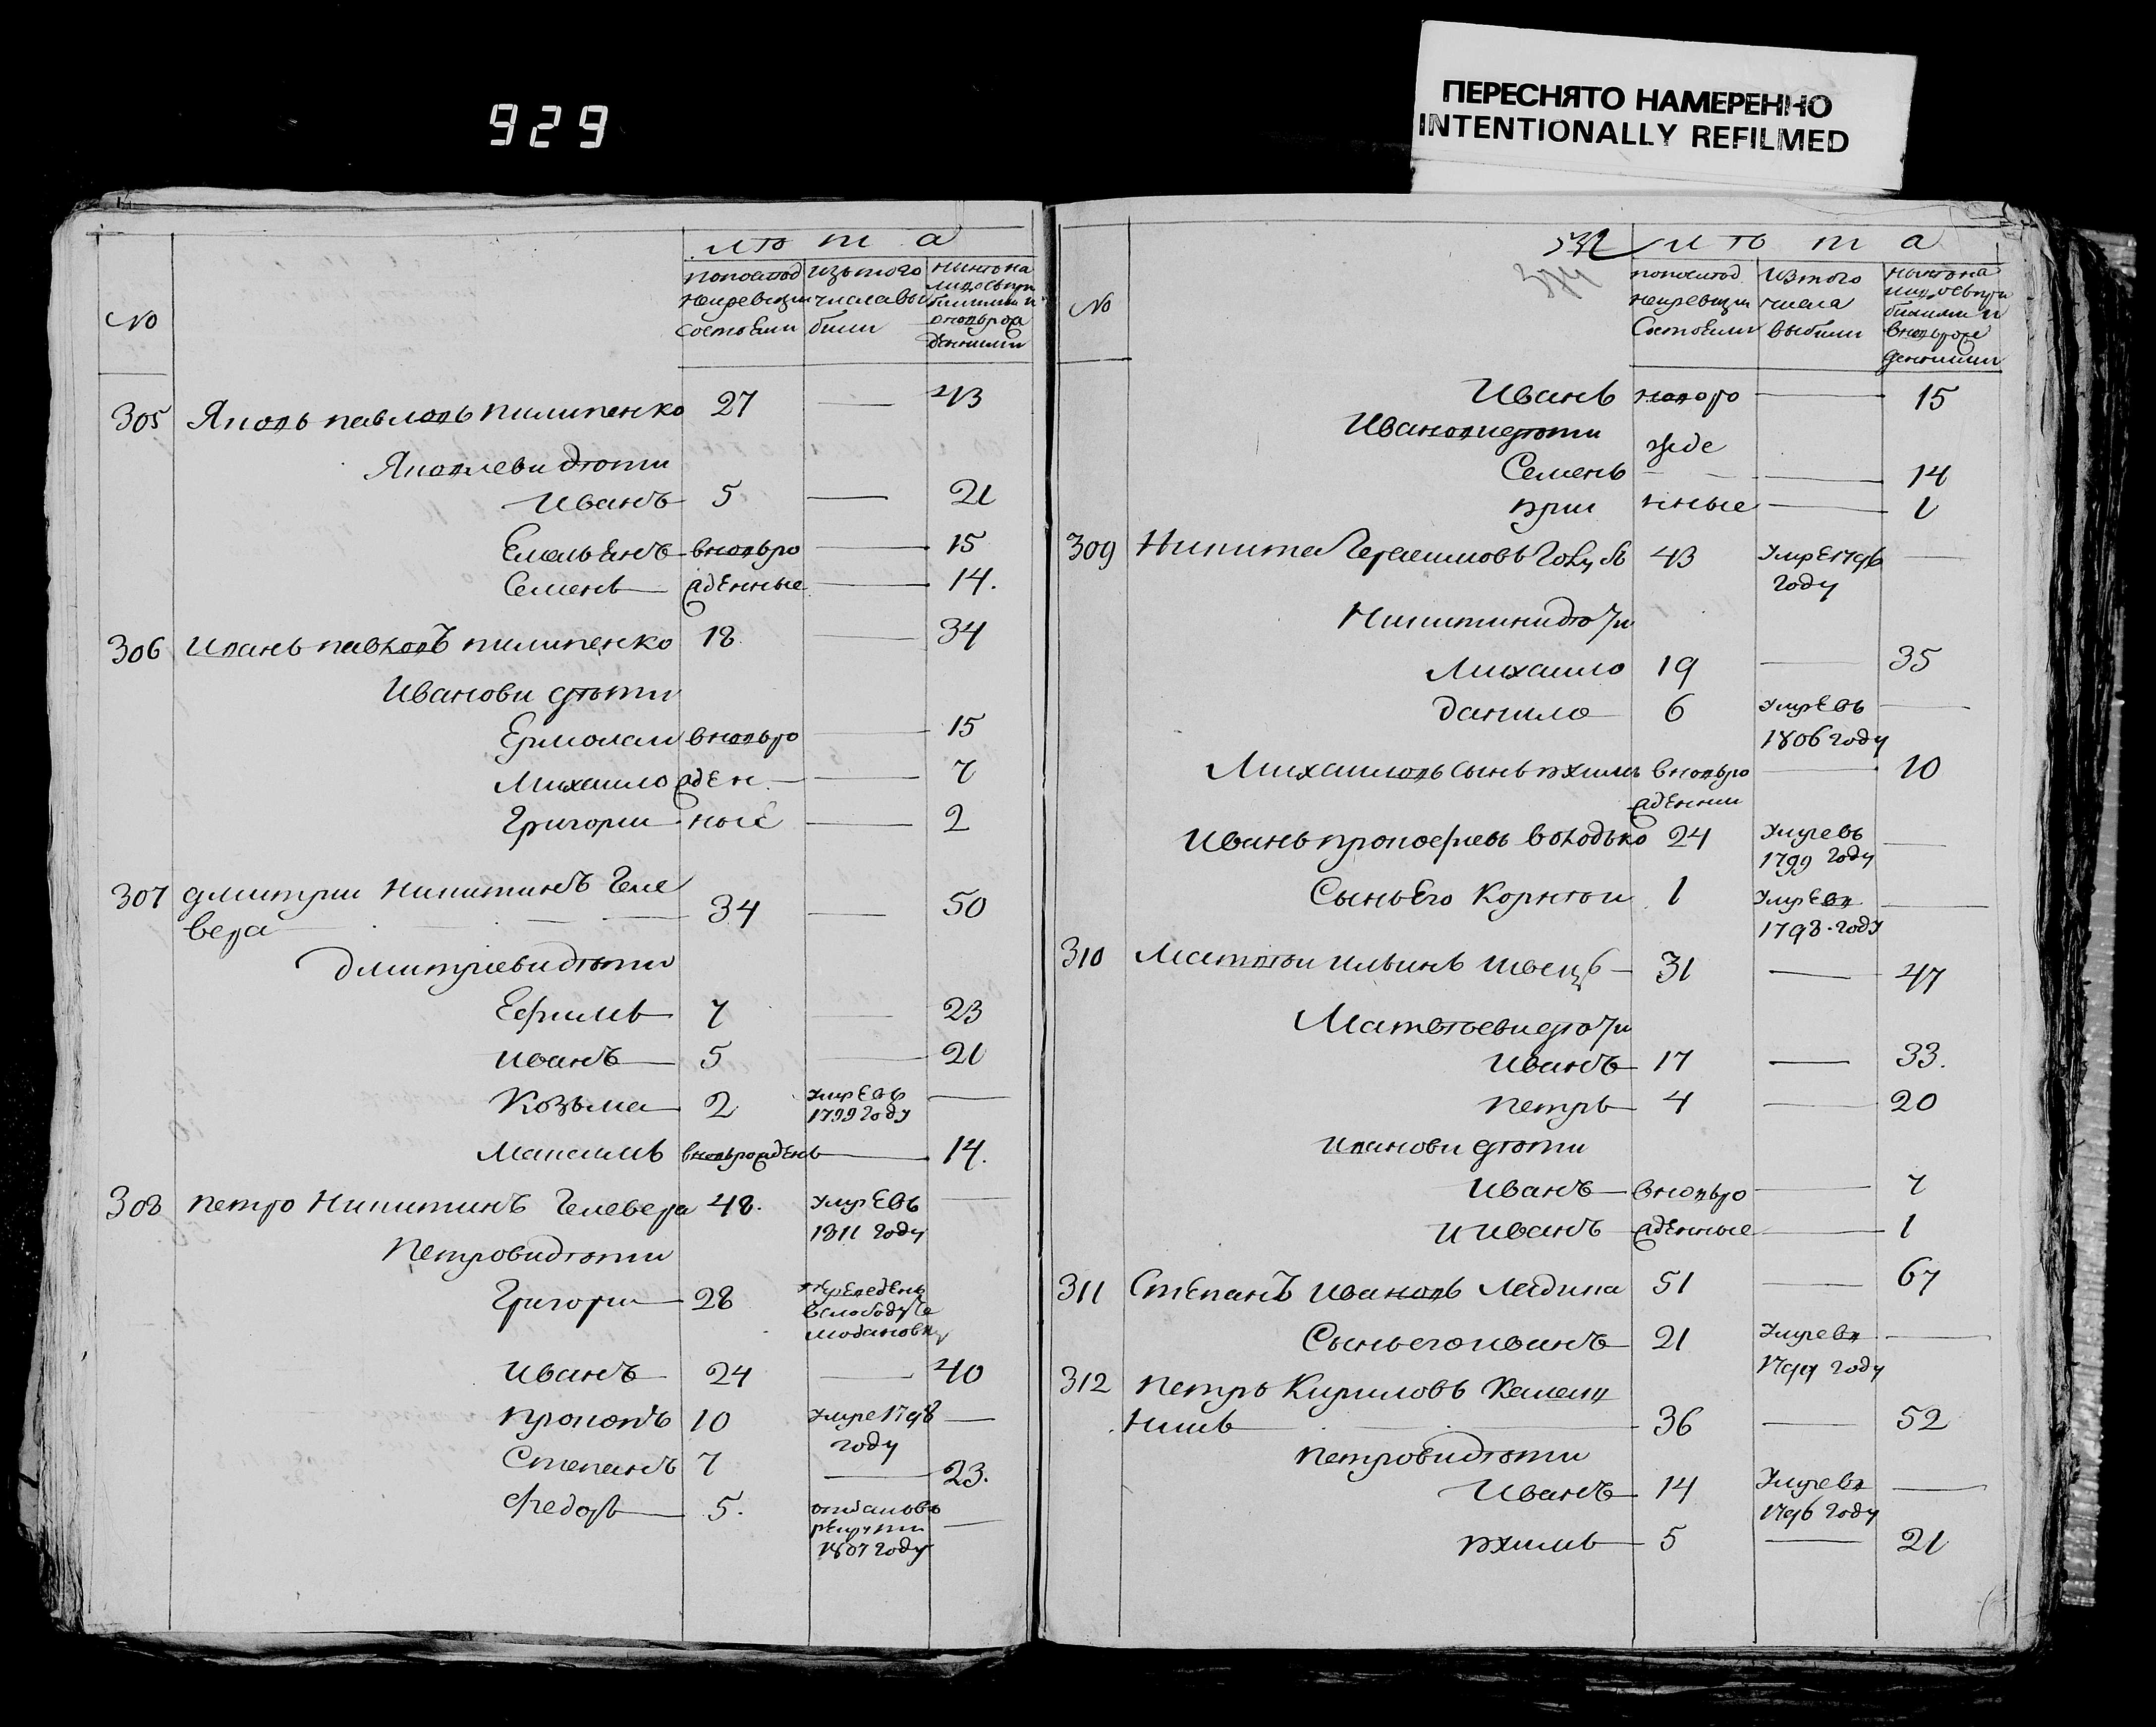 929
ПЕРЕСНЯТО НАМЕРЕННО
INTENTIONALLY REFILMED
№
лѣта
попослѣд
ней ревизии
состояли
изъ того
числа вы
были
ныне на
лицо съ при
былыми и
вновь ро
жденными
305 Яковъ павловъ пилипенко 27 — 43
Яковлеви дѣти
Иванъ 5 — 21
Емельянъ вновь ро — 15
Семенъ жденные — 14.
306 Иванъ павловъ пилипенко 18 — 34
Иванови дѣти
Ермолаи вновь ро — 15
Михаило жден — 7
Григории ные — 2
307 дмитрии Никитинъ Геле
вера 34 — 50
дмитриеви дѣти
Ефимъ 7 — 23
иванъ 5 — 21
Козьма 2 умре въ —
1799 году
Максимъ вновь рожденъ — 14.
308 петро Никитинъ Гелевера 48. умре въ —
1811 году
Петрови дѣти
Григории 28 переведенъ
в слободу Ге
Иванъ 24 — 40
прокопъ 10 умре 1798 —
году
Степанъ 7 — 23.
Федоръ 5. отданъ въ —
рекруты
1807 году
532
№
лѣта
попослѣд
ней ревизии
состояли
из того
числа
выбыли
ныне на
лицо съ при
былыми и
вновь ро
жденными
Иванъ новоро — 15
Иванови дѣти
жде
Семенъ — 14
нные — 1
309 Никита Герасимовъ Голубъ 43 умре 1796 —
году
Никитини дѣти
Михаило 19 — 35
данило 6 умре въ —
1806 году
Михаиловъ сынъ якимъ вновь ро — 10
жденни
Иванъ прокофиевъ володько 24 умре въ —
1799 году
Сынъ Его Корнѣи 1 умре въ —
1798. году
310 Матвѣи ильинъ швецъ — 31 — 47
Матвѣеви дѣти
Иванъ 17 — 33.
петръ 4 — 20
иванови дѣти
Иванъ вновь ро — 7
и иванъ жденные — 1
311 Степанъ ивановъ Ледина 51 — 67
Сынъ его иванъ 21 умре въ —
1799 году
312 петръ Кириловъ
36 — 52
петрови дѣти
Иванъ 14 умре въ —
1796 году
якимъ 5 — 21